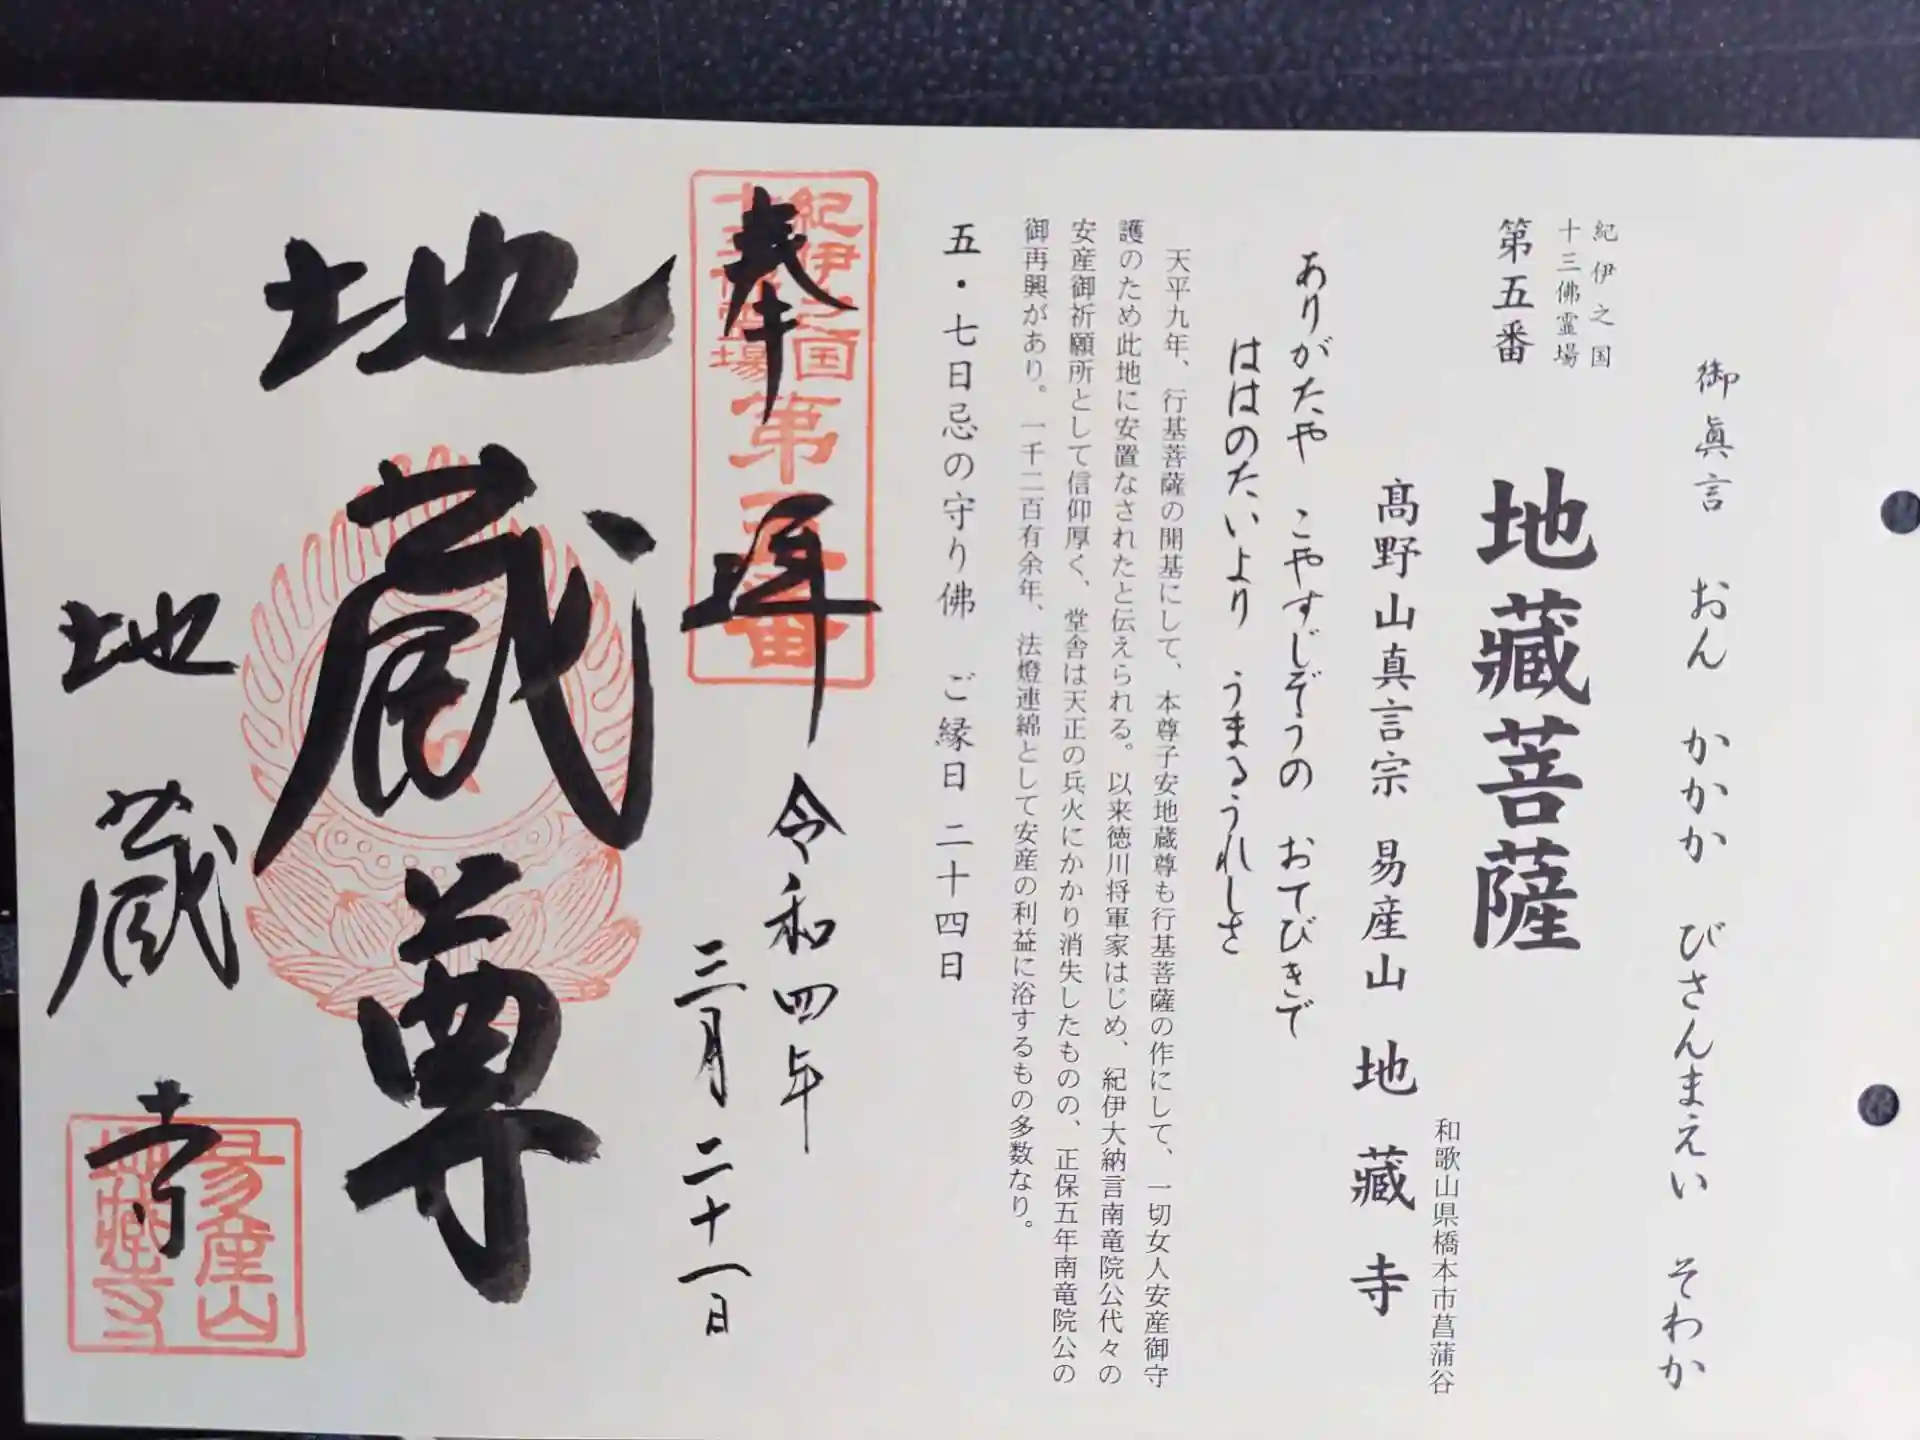 御眞言　おん　かかか　びさんまえい　そわか
紀伊之国
十三佛霊場
第五番
地藏菩薩
和歌山県橋本市菖蒲谷
髙野山真言宗　易産山　地藏寺
ありがたや　こやすじぞうの　おてびきで
ははのたいより　うまるうれしさ
天平九年、行基菩薩の開基にして、本尊子安地蔵尊も行基菩薩の作にして、一切女人安産御守
護のため此地に安置なされたと伝えられる。以来徳川将軍家はじめ、紀伊大納言南竜院公代々の
安産御祈願所として信仰厚く、堂舎は天正の兵火にかかり消失したものの、正保五年南竜院公の
御再興があり。一千二百有余年、法燈連綿として安産の利益に浴するもの多数なり。
五・七日忌の守り佛　ご縁日 二十四日
紀伊之国
十三佛霊場
第五番
奉拝
令和四年
三月二十一日
地蔵尊
地蔵寺
易産山
地藏寺